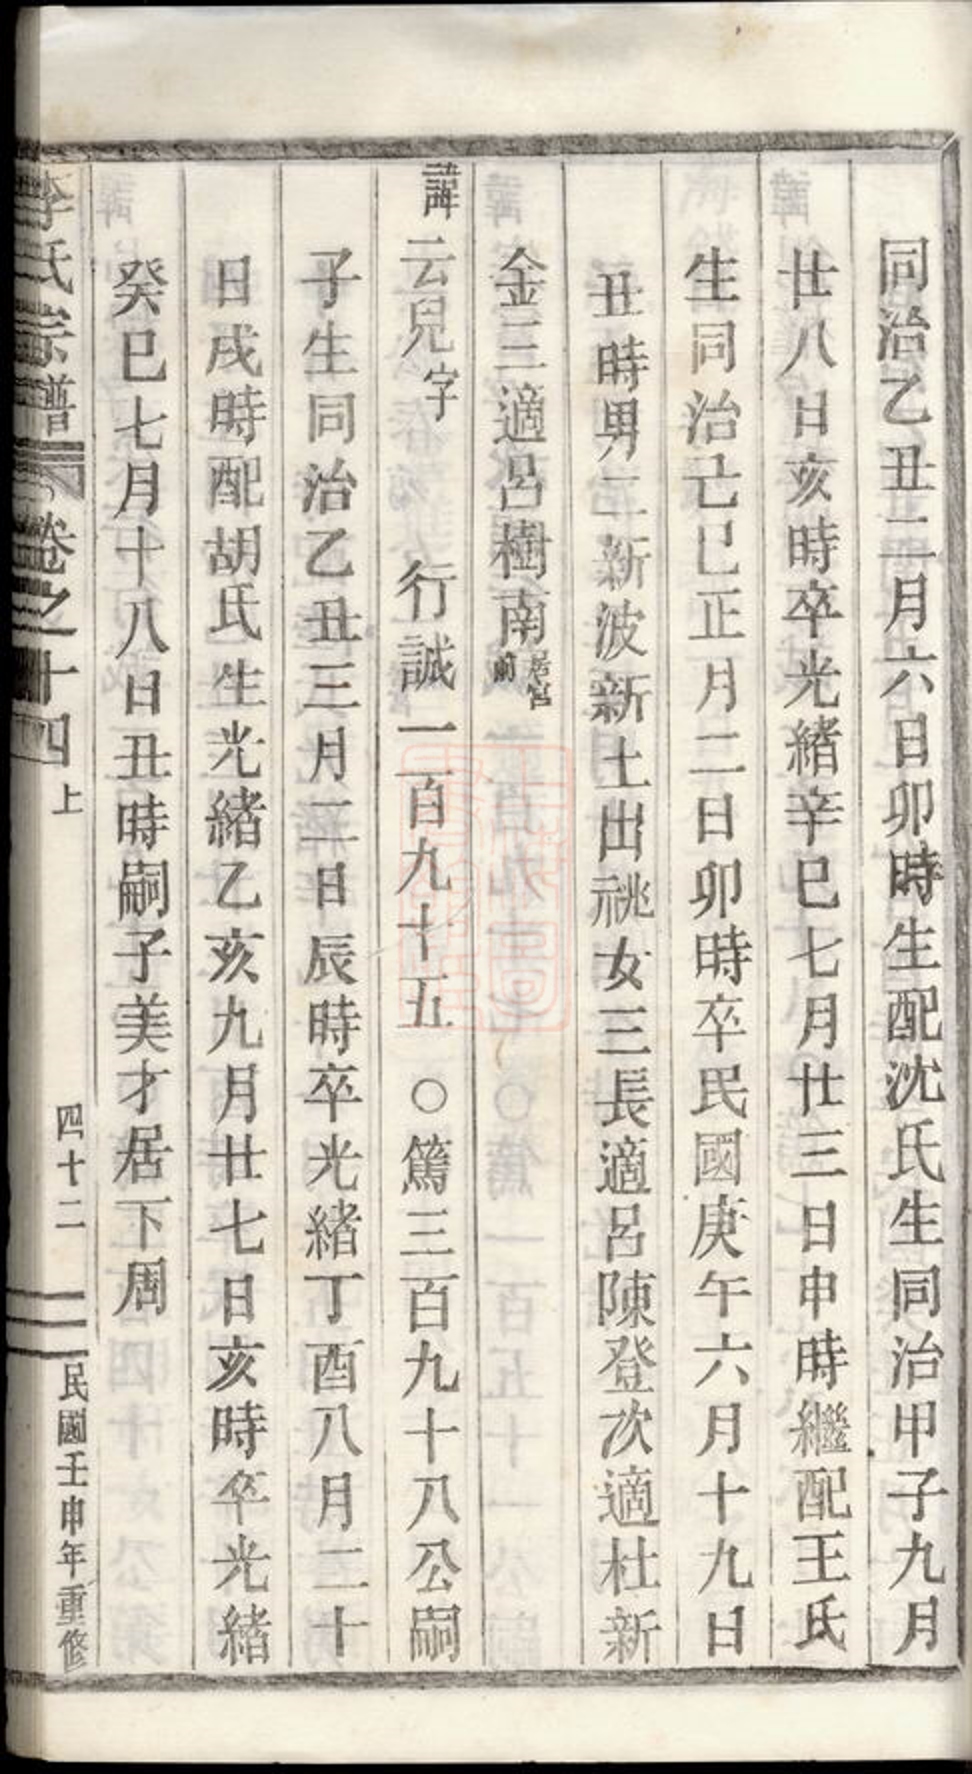 同治乙丑二月六日卯時生配沈氏生同治甲子九月
廿八日亥時卒光緒辛巳七月廿三日申時繼配王氏
生同治己巳正月二日卯時卒民國庚午六月十九日
丑時男二新波新土出祧女三長適呂陳登次適杜新
金三適呂樹南居宮前
諱云兒字 行誠一百九十五 ○篤三百九十八公嗣
子生同治乙丑三月二日辰時卒光緒丁酉八月二十
日戌時配胡氏生光緒乙亥九月廿七日亥時卒光緒
癸巳七月十八日丑時嗣子美才居下周
李氏宗譜 卷之十四 上 四十二 民國壬申年重修